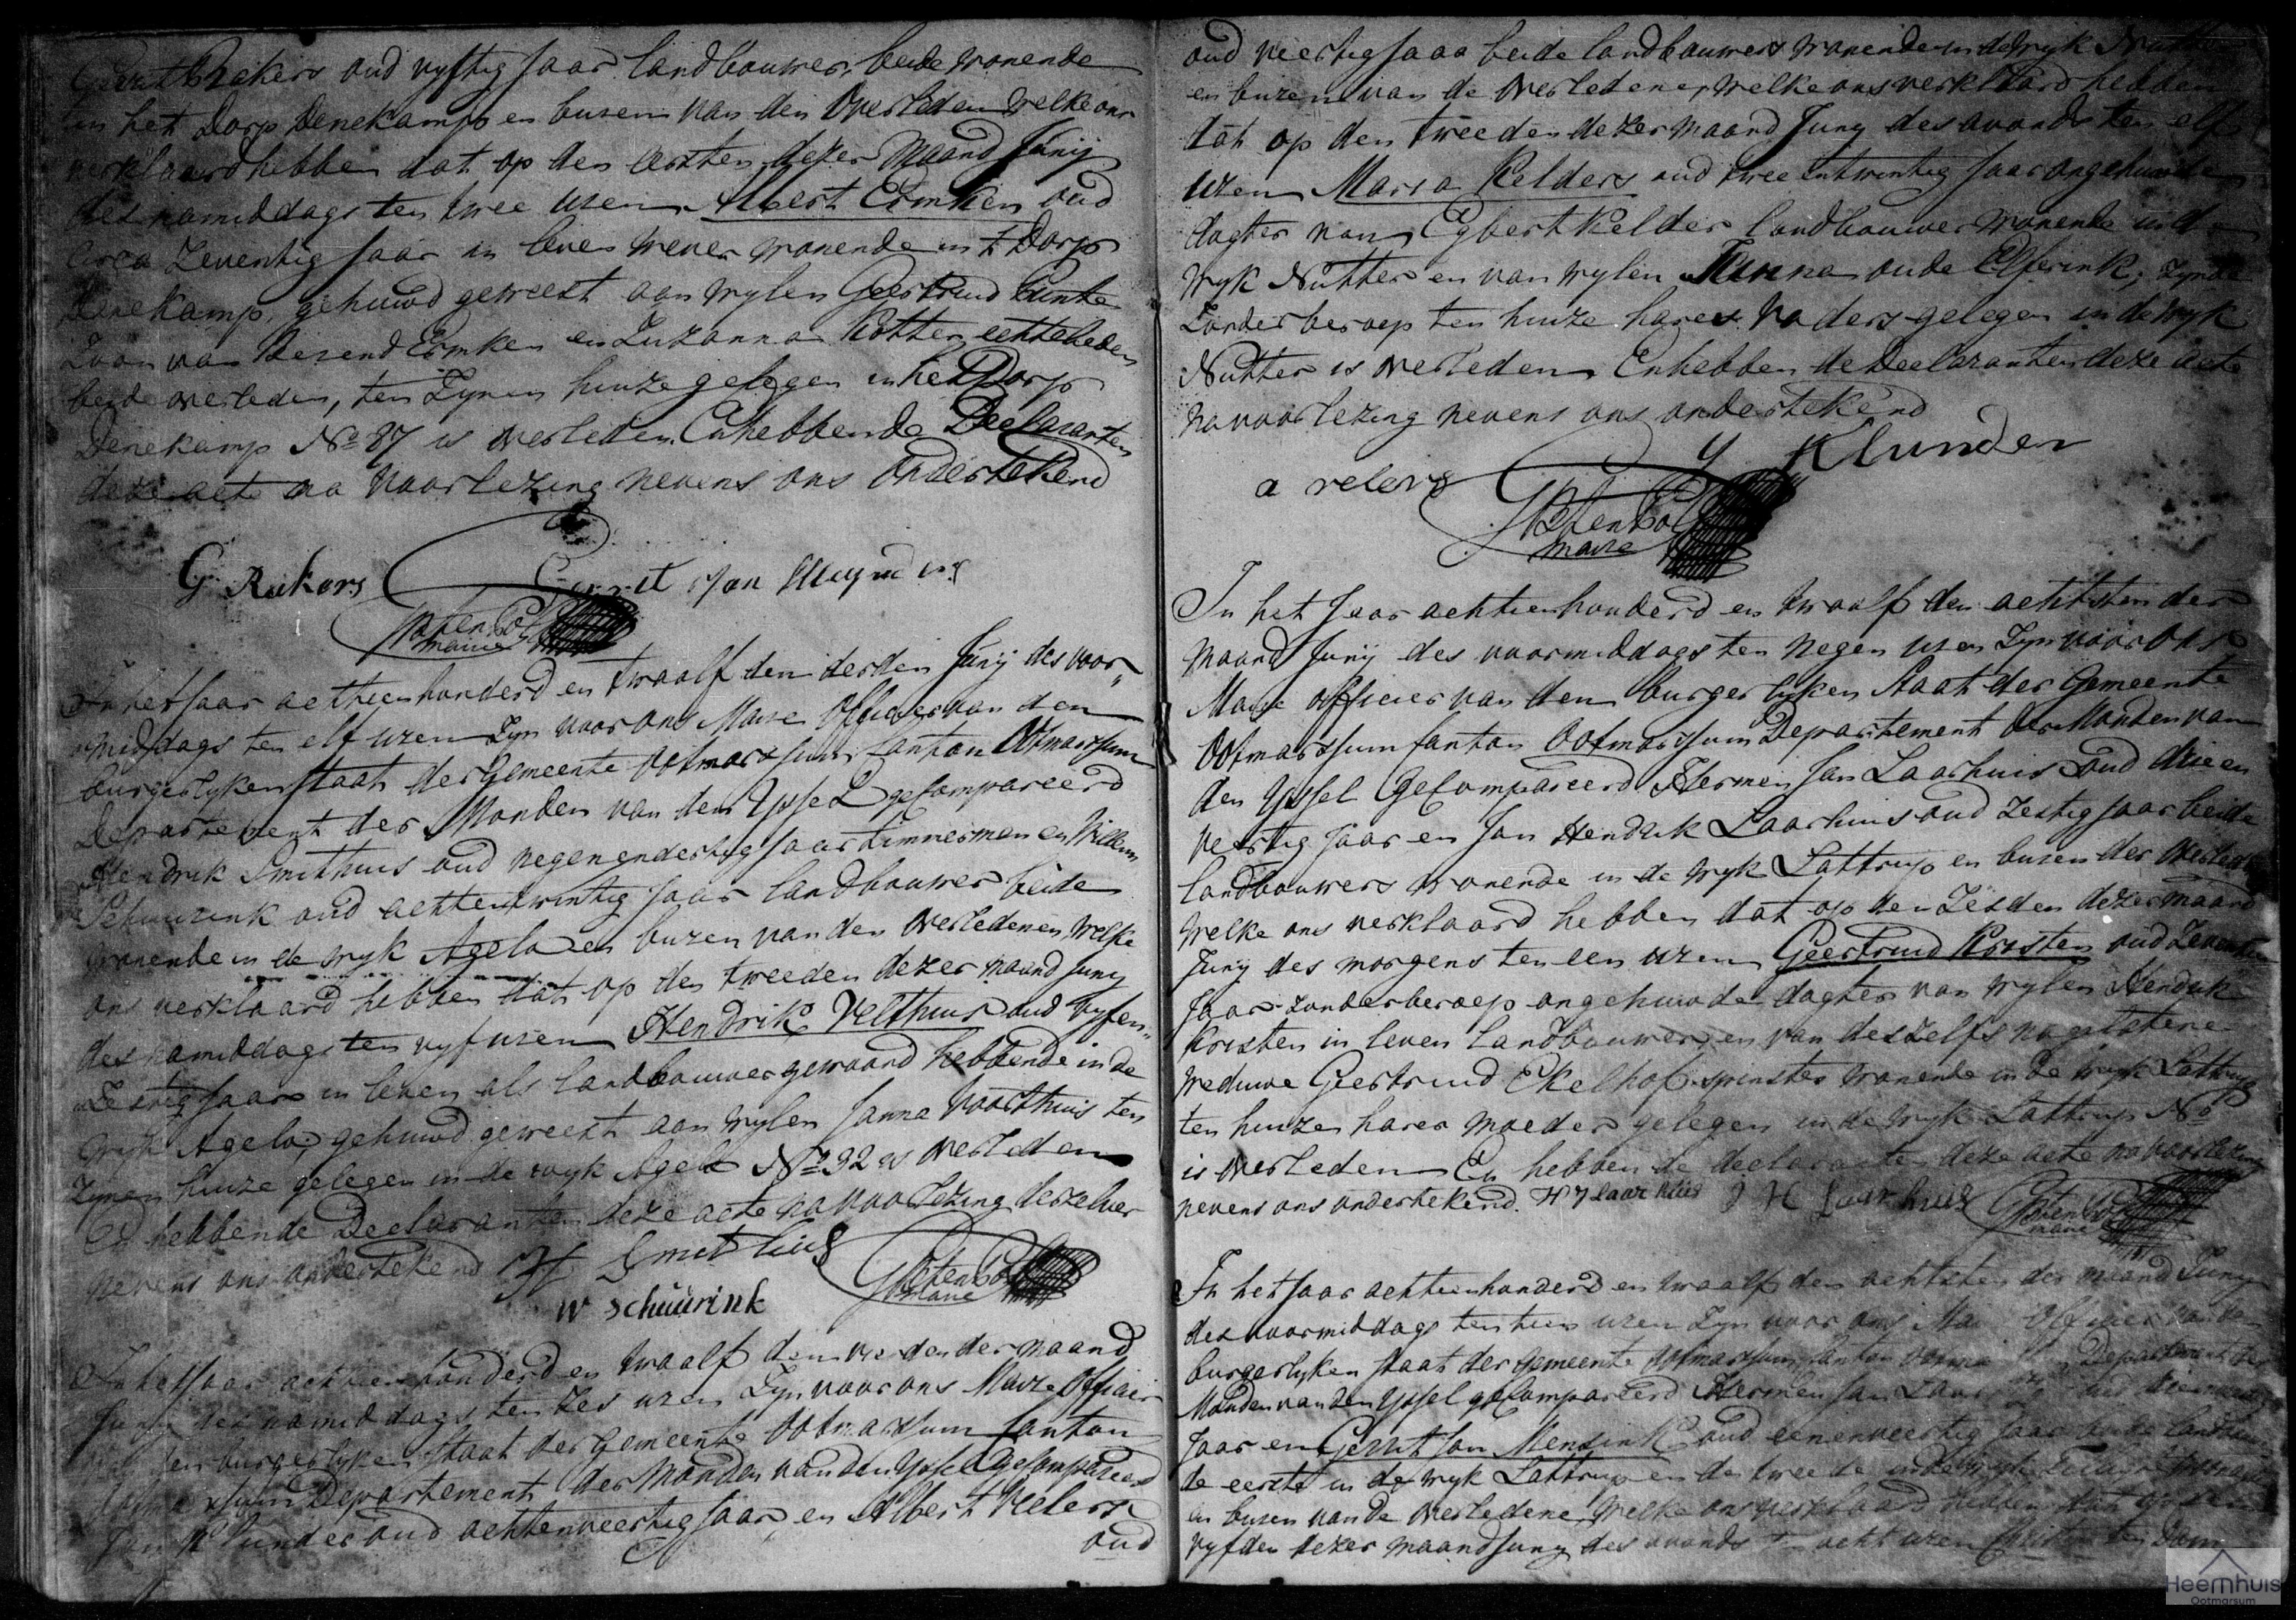 Gerrit Reekers oud vyftig Jaar landbouwer, beide wonende
in het Dorp Denekamp en buren van den Overleden welke ons
verklaard hebben dat op den eersten dezer Maand Junij
des namiddags ten twee uren Albert Eemken oud
circa Zeventig Jaar in leven wever wonende in 't Dorp
Denekamp, gehuwd geweest aan wylen Geertruid
Zoon van Berend Eemken en Zuzanna Kotter echtelieden
beide overleden, ten Zynen huize gelegen in het Dorp
Denekamp No 87 is overleden. En hebben de Declaranten
deze acte na voorlezing nevens ons ondertekend
G Reekers Gerrit Jan
maire
In het Jaar achtienhonderd en twaalf den derden Junij des voor"
"middags ten elf uren Zyn voor ons Maire Officier van den
burgerlyken staat der Gemeente Ootmarssum Canton Ootmarssum
Departement der Monden van den Yssel gecompareerd
Hendrik Smithuis oud negenendertig Jaar timmerman en Willem
Schuurink oud achtentwintig Jaar landbouwer beide
wonende in de wyk Agelo en buren van den overledenen, welke
ons verklaard hebben dat op den tweeden dezer maand Juny
des namiddags ten vyf uren Hendrik Velthuis oud vyfen"
"Zestig Jaar in leven als landbouwer gewoond hebbende in de
wyk Agelo, gehuwd geweest aan wylen Janna Voorthuis ten
Zynen huize gelegen in de wyk Agelo No 32 is overleden
En hebben de Declaranten deze acte na voorlezing derzelver
nevens ons ondertekend H Smithuis
W Schuurink maire
In het Jaar achtienhonderd en twaalf den vierden der maand
Juny des namiddags ten zes uren Zyn voor ons Maire Officier
van den burgerlyken Staat der Gemeente Ootmarssum Canton
Ootmarssum Departement der Monden van den Yssel gecompareerd
Jan Klunder oud achtenveertig Jaar en Albert Velers
oud
oud veertig Jaar beide landbouwers wonende in de wyk Nutter
en buren van de Overledene, welke ons verklaard hebben
dat op den tweeden dezer maand Juny des avonds ten elf
uren Maria Kelders oud twee entwintig Jaar ongehuwde
dogter van Egbert Kelder landbouwer wonende in de
wyk Nutter en van wylen Janna oude Elferink, Zynde
Zonder beroep ten huize hares Vaders gelegen in de wyk
Nutter is overleden En hebben de Declaranten deze acte
na voorlezing nevens ons ondertekend
J Klunder
a velers
maire
In het Jaar achtienhonderd en twaalf den achtsten der
Maand Junij des voormiddags ten negen uren Zyn voor Ons
Maire officier van den burgerlyken Staat der Gemeente
Ootmarssum Canton Ootmarssum Departement der Monden van
den Yssel Gecompareerd Hermen Jan Laarhuis oud drie en
veertig Jaar en Jan Hendrik Laarhuis oud Zestig Jaar beide
landbouwers wonende in de wyk Lattrup en buren der Overledene
welke ons verklaard hebben dat op den Zesden dezer maand
Juny des morgens ten een uren Geertruid Korsten oud Zeventien
Jaar zonder beroep ongehuwde dogter van wylen Hendrik
Korsten in leven landbouwer, en van deszelfs nagelatene
weduwe Geertruid Ekelhof spinster wonende in de wyk Lattrup
ten huize harer moeder gelegen in de wyk Lattrup No
is overleden En hebben de declaranten deze acte na voorlezing
nevens ons ondertekend. H J laarhuis J H Laarhuis
maire
In het Jaar achtienhonderd en twaalf den achtsten der maand Juny
des voormiddags ten tien uren Zyn voor ons Maire Officier van den
burgerlyken staat der Gemeente Ootmarssum Canton Departement der
Monden van den Yssel gecompareerd Hermen Jan Laar oud
Jaar en Gerrit Jan Mensink oud eenenveertig Jaar beide
de eerste in de wyk Lattrup en de tweede in de wyk
en buren van de overledene, welke ons verklaard hebben dat op den
vyfden dezer maand Juny des avonds ten acht uren
Heemhuis
Ootmarsum